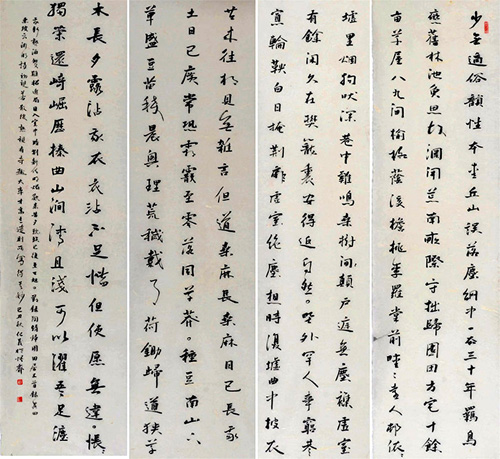 少無適俗韻性本愛丘山误落塵網中一去三十年羈鳥
戀舊林池魚思故淵開荒南畝際守拙歸園田方宅十餘
畝草屋八九間榆柳蔭後檐桃李羅堂前曖曖遠人村依
墟里烟狗吠深巷中雞鳴桑樹顛戶庭無塵襍虛室
有餘閑久在樊籠裏得返自然。野外罕人事窮巷
寡輪鞅白日掩荊扉虛室絕塵想時復墟曲中披衣
来往相見無雜言但道桑麻長桑麻日已長我
土日已廣常恐霜霰至零落同草莽。種豆南山下
草盛豆苗稀晨興理荒穢戴月荷鋤歸道狹草
木長夕露沾我衣衣沾不足惜但使願無違。悵
獨策還崎嶇歷榛曲山澗清且淺可以濯吾足漉
我新熟酒隻雞招近局日入室中闇荊薪代明燭歡來苦夕短已復至天旭